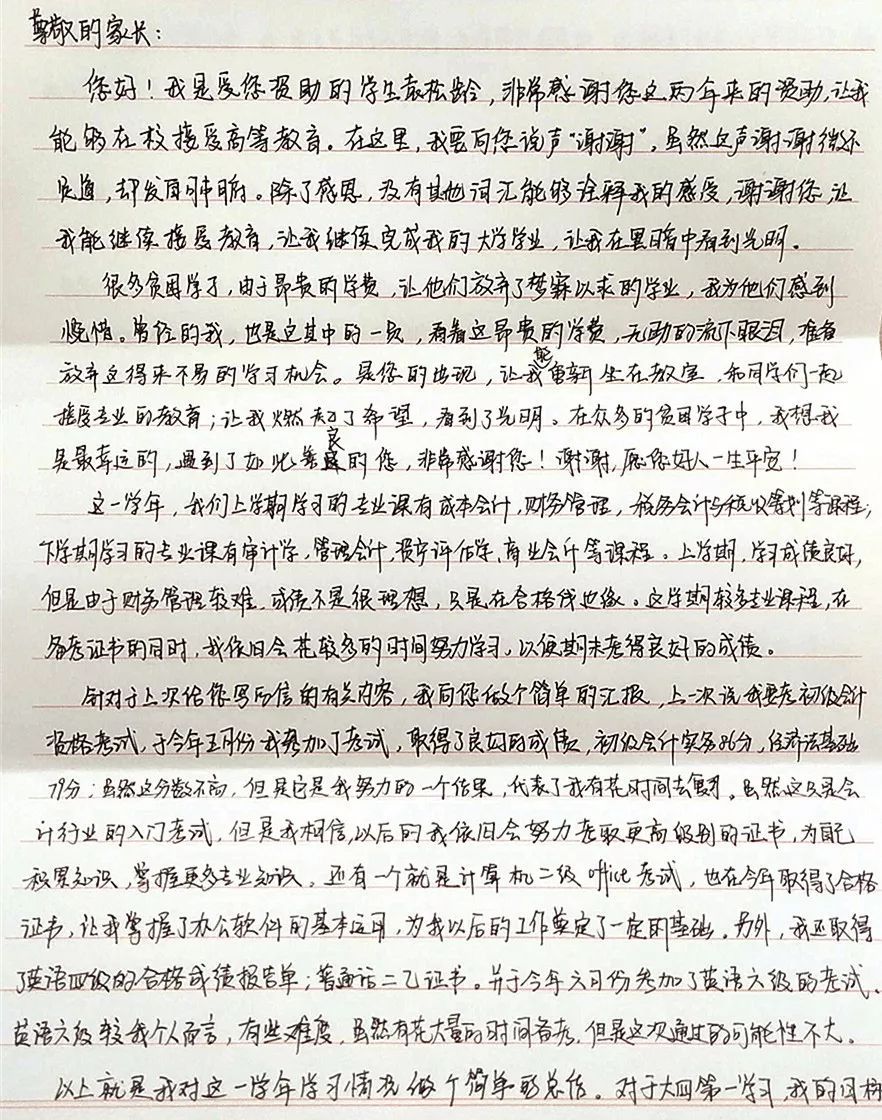 尊敬的家长：
您好！我是受您资助的学生袁松龄，非常感谢您这两年来的资助，让我
能够在校接受高等教育。在这里，我要向您说声“谢谢”，虽然这声谢谢微不
足道，却发自内中肺腑。除了感恩，没有其他词汇能够诠释我的感受，谢谢您，让
我能继续接受教育，让我继续完成我的大学学业，让我在黑暗中看到光明。
很多贫困学子，由于昂贵的学费，让他们放弃了梦寐以求的学业，我为他们感到
惋惜。曾经的我，也是这其中的一员，看着这昂贵的学费，无助的流下眼泪，准备
放弃这得来不易的学习机会。是您的出现，让我能重新坐在教室，和同学们一起
接受专业的教育；让我燃起了希望，看到了光明。在众多的贫困学子中，我想我
是最幸运的，遇到了如此善良的您，非常感谢您！谢谢，愿您好人一生平安！
这一学年，我们上学期学习的专业课有成本会计，财务管理，税务会计与税收筹划等课程；
下学期学习的专业课有审计学，管理会计，资产评估学，商业会计等课程。上学期，学习成绩良好，
但是由于财务管理较难，成绩不是很理想，只是在合格线边缘。这学期较多专业课程，在
备考证书的同时，我依旧会花较多的时间努力学习，以便期末考得良好的成绩。
针对于上次给您写的信的有关内容，我向您做个简单的汇报，上一次说我要考初级会计
资格考试，于今年五月份我参加了考试，取得了良好的成绩，初级会计实务86分，经济法基础
79分；虽然这分数不高，但是它是我努力的一个结果，代表了我有花时间去复习。虽然这只是会
计行业的入门考试，但是我相信，以后的我依旧会努力考取更高级别的证书，为自己
积累知识，掌握更多专业知识。还有一个就是计算机二级office考试，也在今年取得了合格
证书，让我掌握了办公软件的基本运用，为我以后的工作奠定了一定的基础。另外，我还取得
了英语四级的合格成绩报告单；普通话二乙证书。并于今年六月份参加了英语六级的考试，
英语六级较我个人而言，有些难度，虽然有花大量的时间备考，但是这次通过的可能性不大。
以上就是我对这一学年学习情况做个简单的总结。对于大四第一学习，我的目标